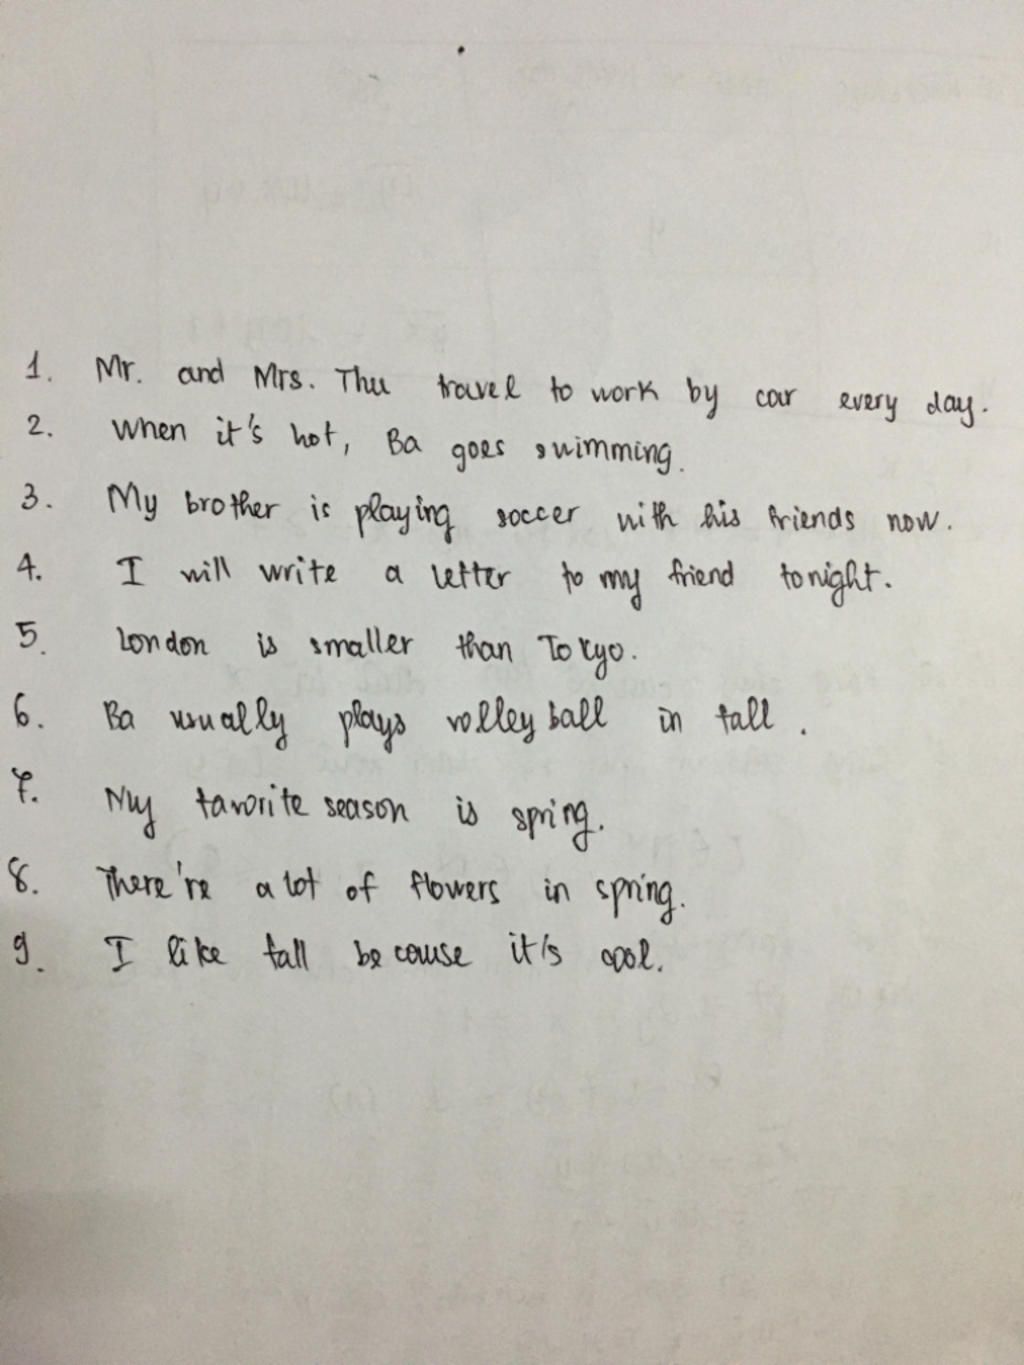 1. Mr. and Mrs. Thu travel to work by car every day.
2. When it's hot, Ba goes swimming.
3. My brother is playing soccer with his friends now.
4. I will write a letter to my friend tonight.
5. London is smaller than Tokyo.
6. Ba usually plays volleyball in fall.
7. My favorite season is spring.
8. There're a lot of flowers in spring.
9. I like fall because it's cool.